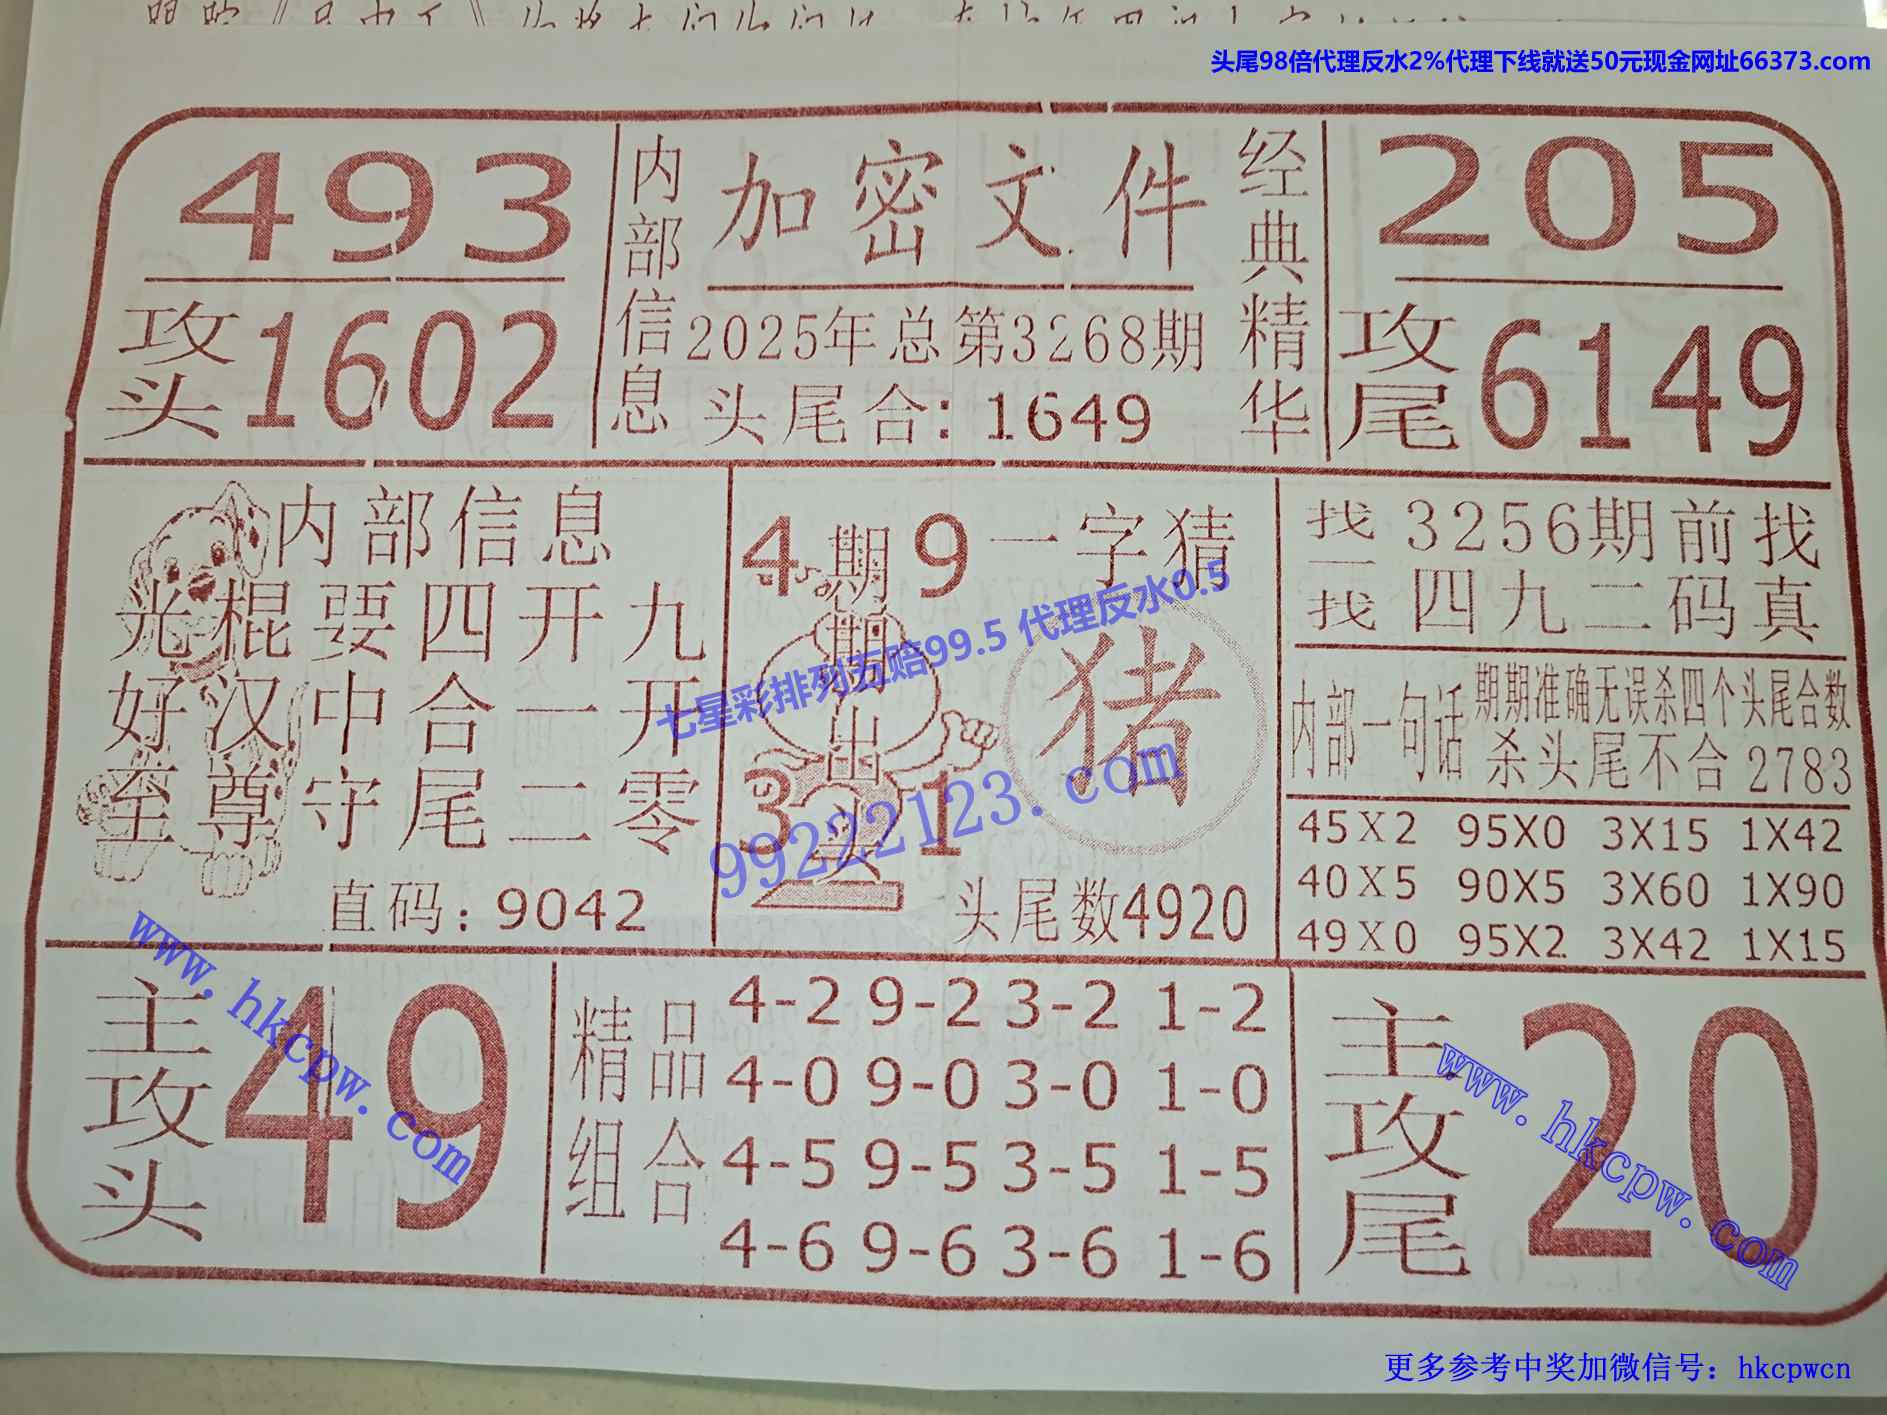 头尾98倍代理反水2%代理下线就送50元现金网址66373.com
493
攻头1602
内部信息
加密文件
2025年总第3268期
头尾合:1649
经典精华
205
攻尾6149
内部信息
光棍要四开九
好汉中合一开
至尊守尾二零
直码:9042
4期9
期期出头
3 1
一字猜
猪
头尾数4920
找一找
3256期前找
四九二码真
内部一句话
期期准确无误杀四个头尾合数
杀头尾不合2783
45X2 95X0 3X15 1X42
40X5 90X5 3X60 1X90
49X0 95X2 3X42 1X15
主攻头
49
精品组合
4-2 9-2 3-2 1-2
4-0 9-0 3-0 1-0
4-5 9-5 3-5 1-5
4-6 9-6 3-6 1-6
主攻尾
20
七星彩排列五赔99.5 代理反水0.5
99222123.com
www.hkcpw.com
www.hkcpw.com
更多参考中奖加微信号：hkcpwcn